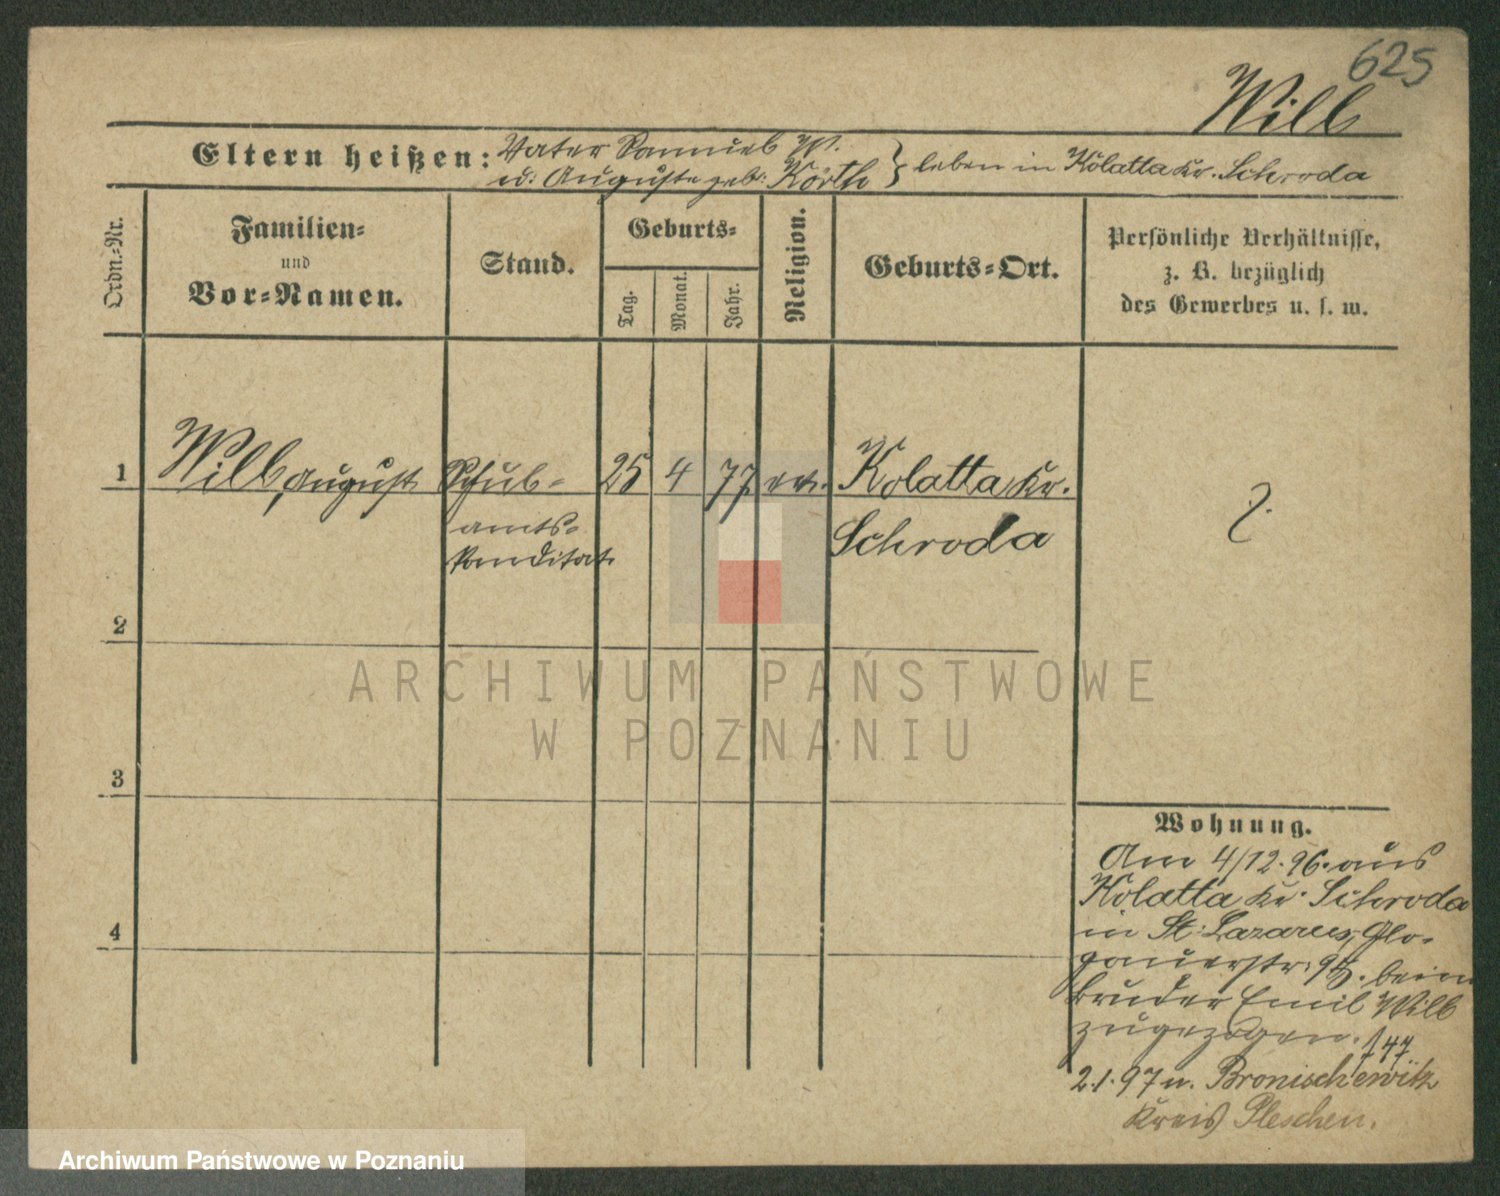 625
Will
Eltern heißen: Vater Samuel W.
u. Auguste geb. Körth } leben in Kolatta Kr. Schroda
Ordn.-Nr.
Familien-
und
Vor-Namen.
Stand.
Geburts-
Tag.
Monat.
Jahr.
Religion.
Geburts-Ort.
Persönliche Verhältnisse,
z. B. bezüglich
des Gewerbes u. s. w.
1 Will, August Schul- 25 4 77 ev. Kolatta Kr.
amts- Schroda
kanditat
2
3
4
Wohnung.
Am 4/12.96. aus
Kolatta Kr. Schroda
in St. Lazarus, Glo-
gauerstr. 95. beim
Bruder Emil Will
zugezogen. 147
2.1.97 n. Bronischewitz
Kreis Pleschen.
ARCHIWUM PAŃSTWOWE
W POZNANIU
Archiwum Państwowe w Poznaniu